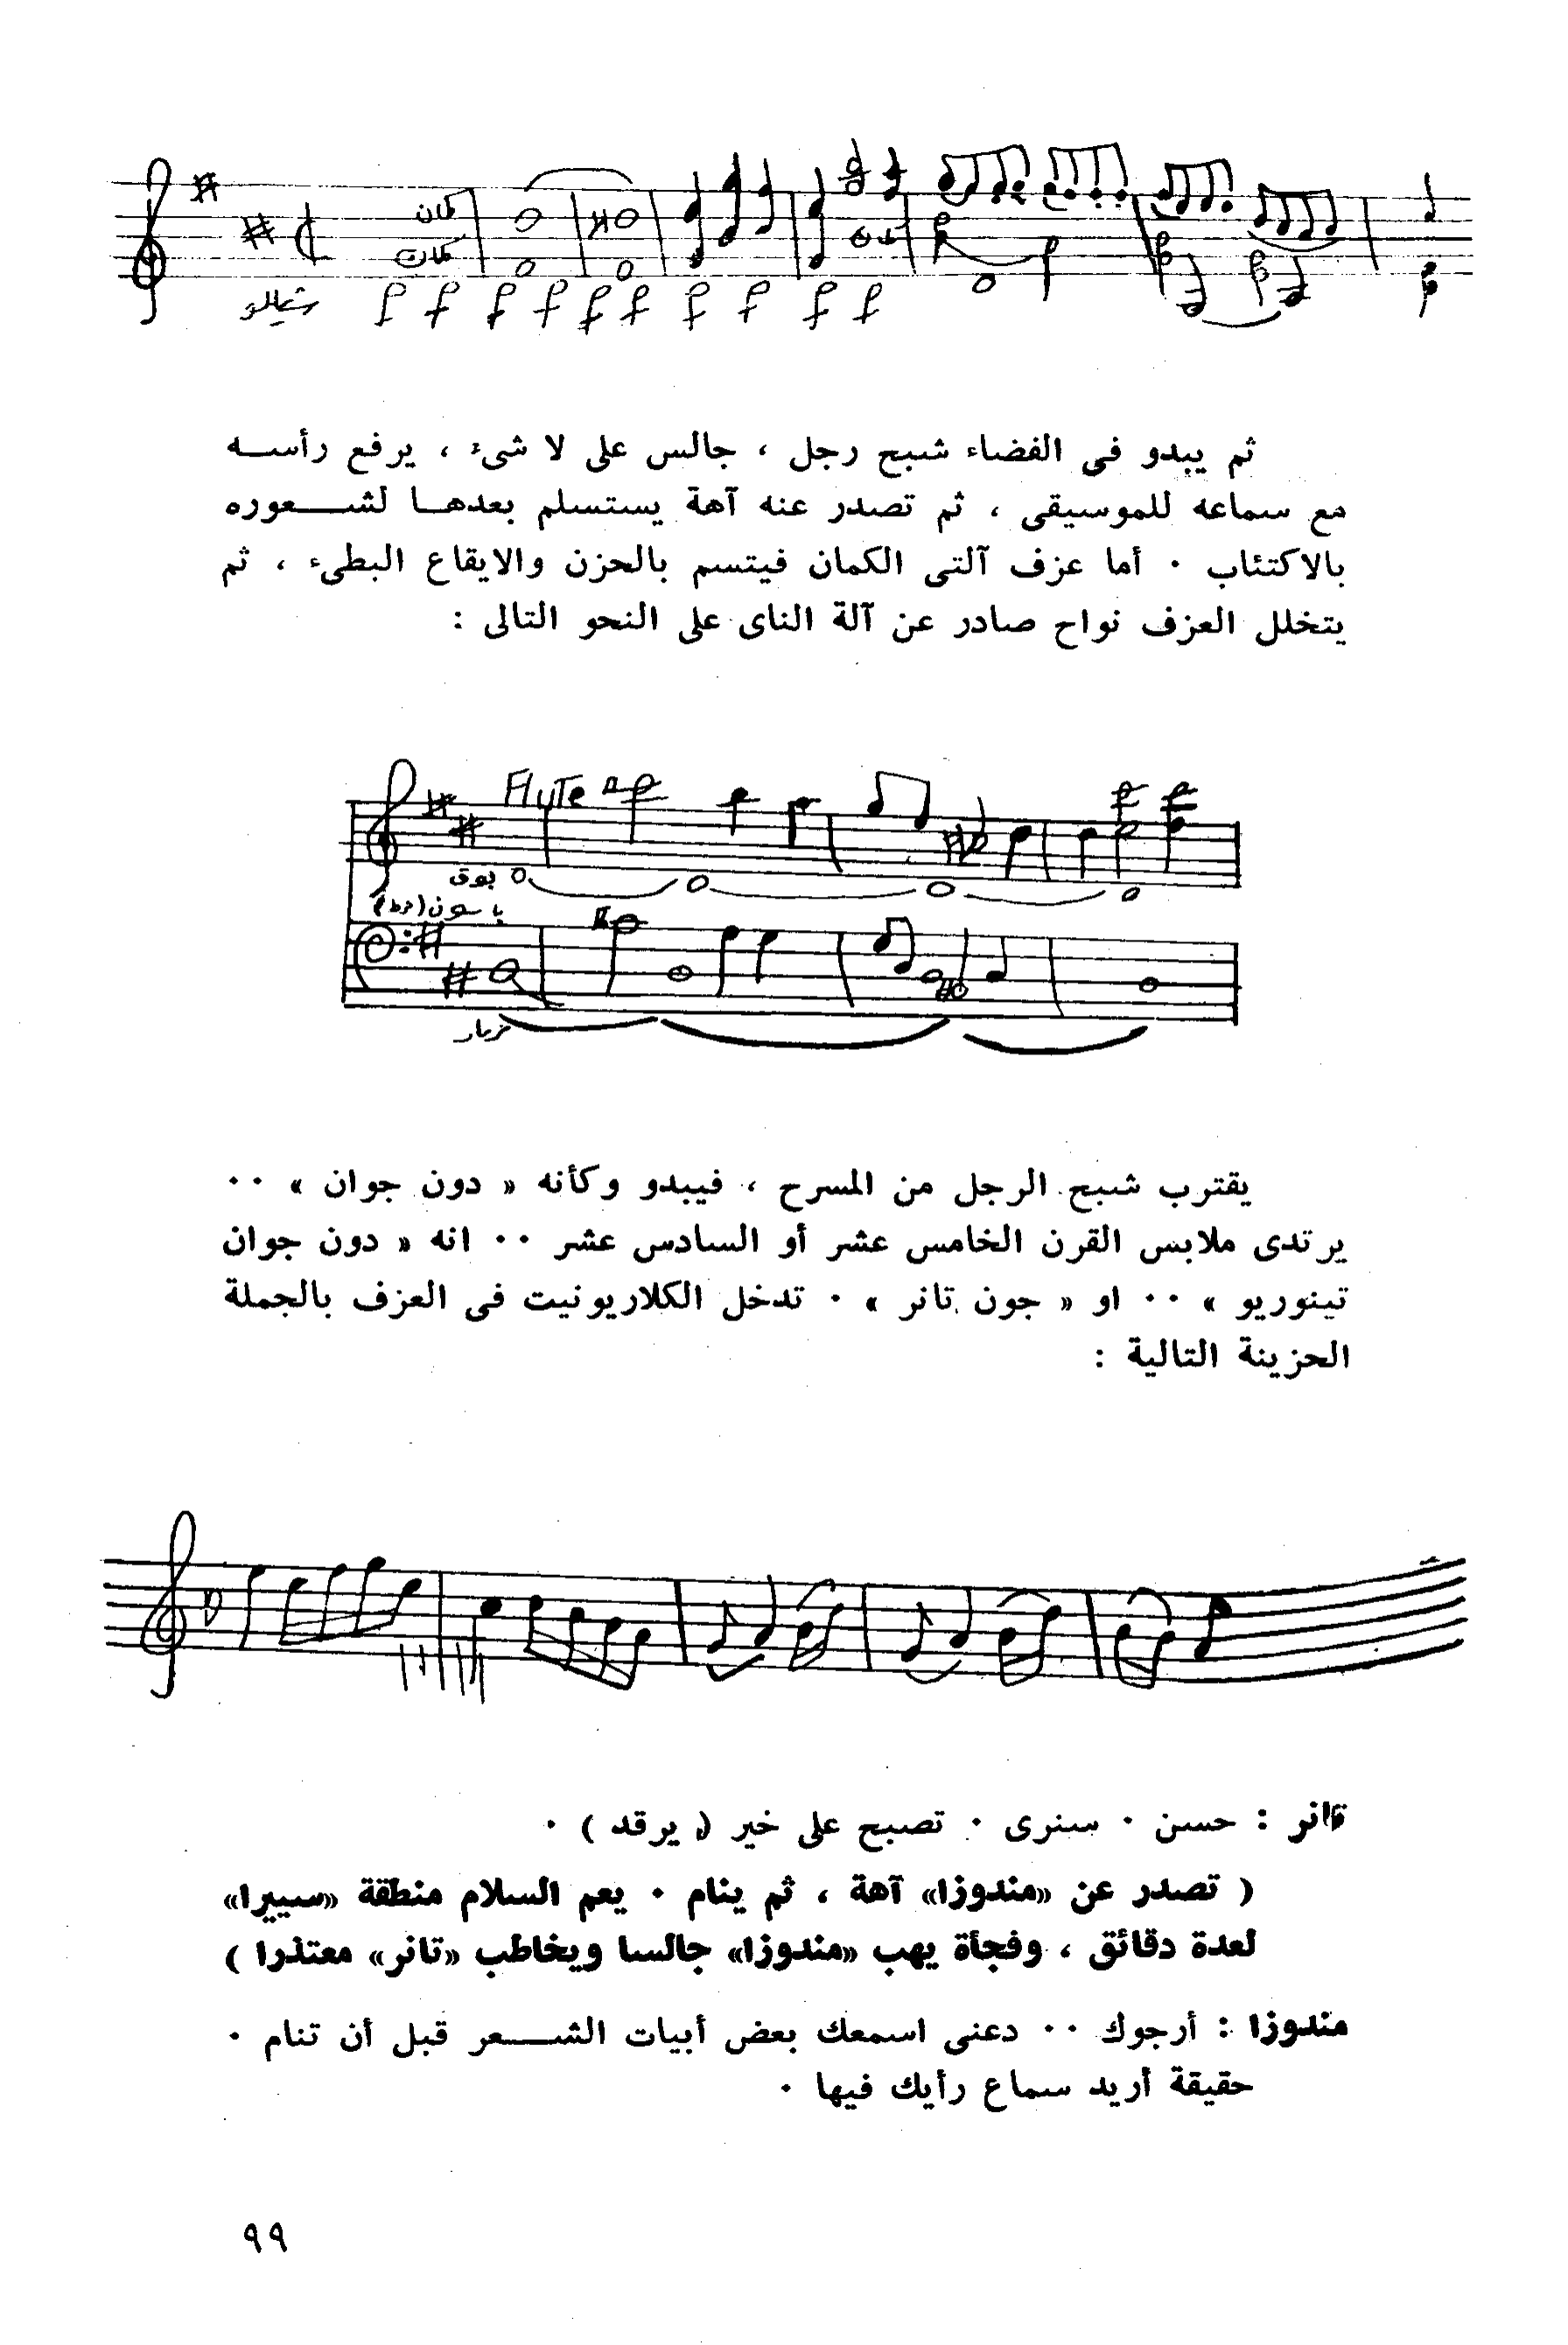 كمان
كمان
تشيللو
ثم يبدو فى الفضاء شبح رجل ، جالس على لا شىء ، يرفع رأســه
مع سماعه للموسيقى ، ثم تصدر عنه آهة يستسلم بعدهــا لشــــعوره
بالاكتئاب ٠ أما عزف آلتى الكمان فيتسم بالحزن والايقاع البطىء ، ثم
يتخلل العزف نواح صادر عن آلة الناى على النحو التالى :
Flute
بوق
باسون
مزمار
يقترب شبح الرجل من المسرح ، فيبدو وكأنه « دون جوان » ٠٠
يرتدى ملابس القرن الخامس عشر أو السادس عشر ٠٠ انه « دون جوان
تينوريو » ٠٠ او « جون تانر » ٠ تدخل الكلاريونيت فى العزف بالجملة
الحزينة التالية :
تانر : حسن ٠ سنرى ٠ تصبح على خير ( يرقد ) ٠
( تصدر عن «مندوزا» آهة ، ثم ينام ٠ يعم السلام منطقة «سييرا»
لعدة دقائق ، وفجأة يهب «مندوزا» جالسا ويخاطب «تانر» معتذرا )
مندوزا : أرجوك ٠٠ دعنى اسمعك بعض أبيات الشــــعر قبل أن تنام ٠
حقيقة أريد سماع رأيك فيها ٠
٩٩